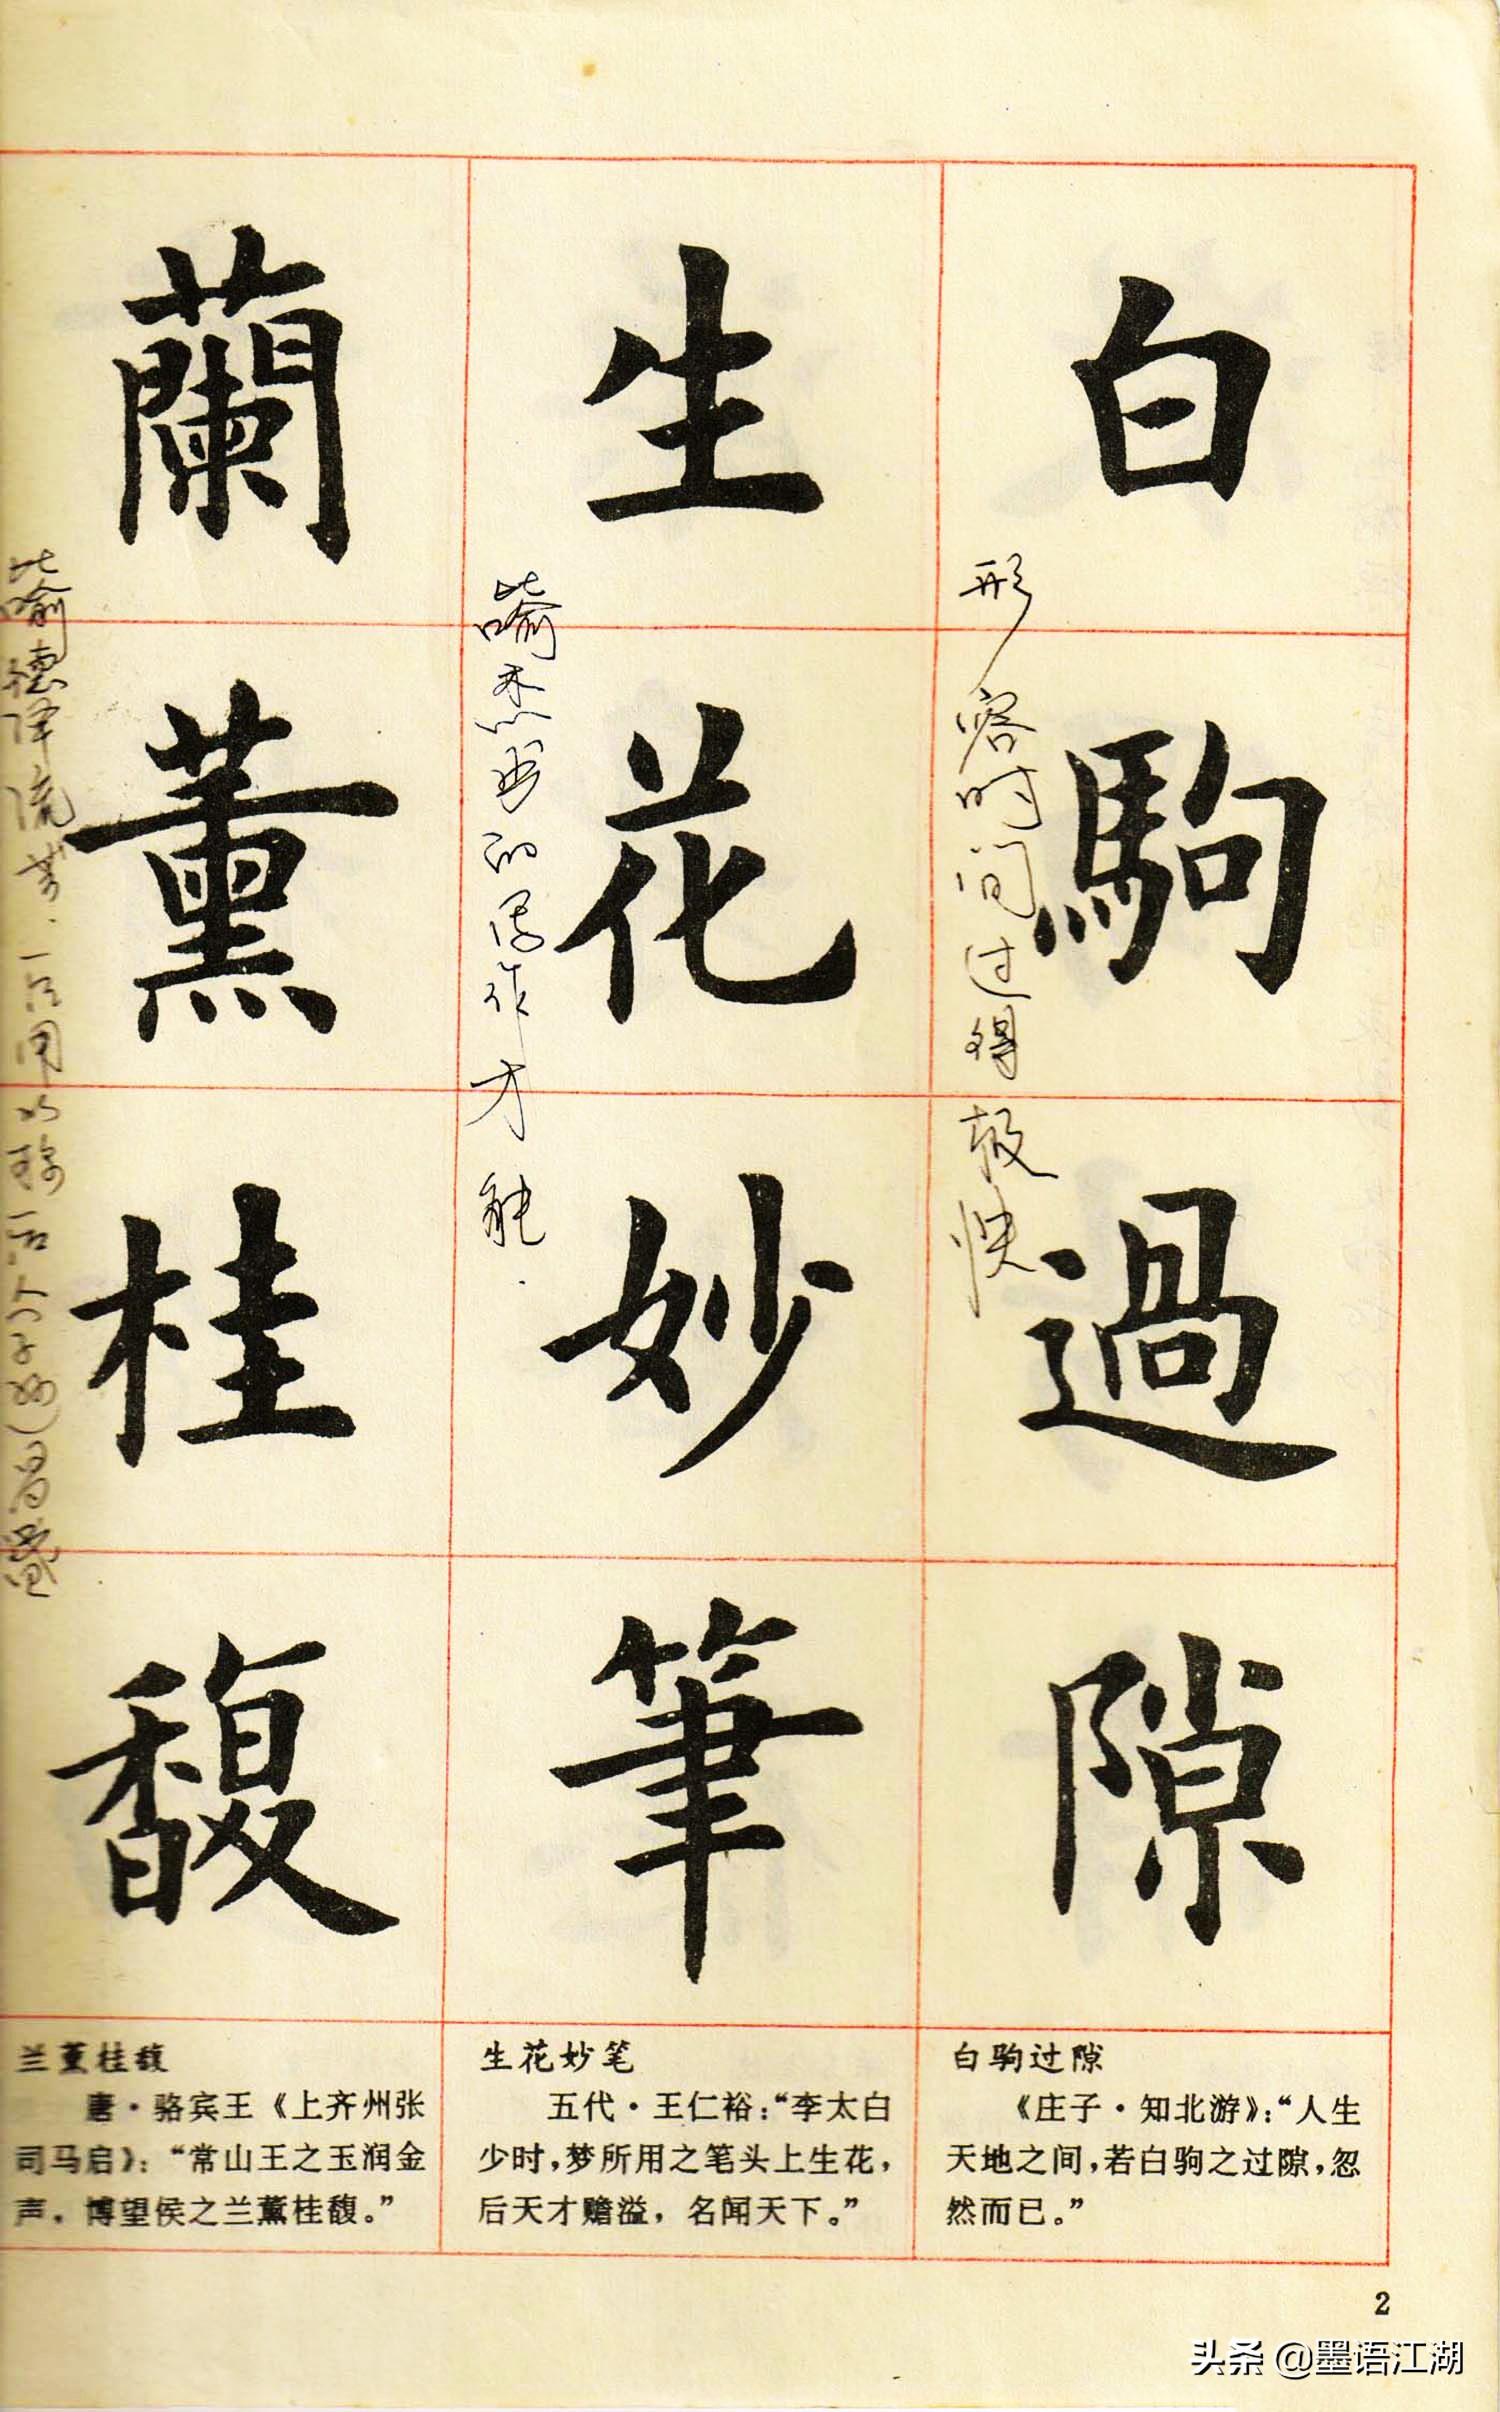 白駒過隙
形容时间过得极快
生花妙筆
比喻杰出的写作才能.
蘭薰桂馥
比喻德泽流芳.
白驹过隙
《庄子·知北游》:“人生
天地之间,若白驹之过隙,忽
然而已。”
生花妙笔
五代·王仁裕:“李太白
少时,梦所用之笔头上生花,
后天才赡溢,名闻天下。”
兰薰桂馥
唐·骆宾王《上齐州张
司马启》:“常山王之玉润金
声,博望侯之兰薰桂馥。”
2
头条 @墨语江湖